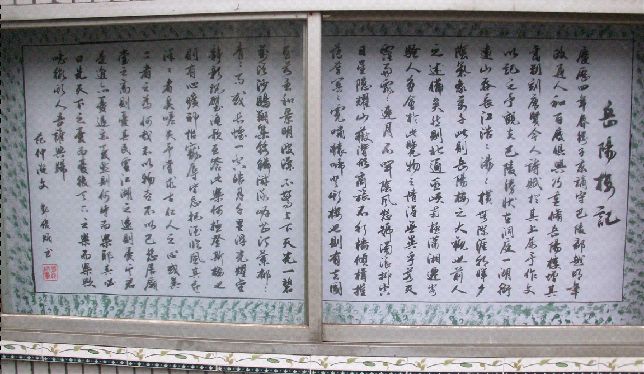 岳陽樓記
慶歷四年春滕子京謫守巴陵郡越明年
政通人和百廢俱興乃重修岳陽樓增其
舊制刻唐賢今人詩賦於其上屬予作文
以記之予觀夫巴陵勝狀在洞庭一湖銜
遠山吞長江浩浩湯湯橫無際涯朝暉夕
陰氣象萬千此則岳陽樓之大觀也前人
之述備矣然則北通巫峽南極瀟湘遷客
騷人多會於此覽物之情得無異乎若夫
霪雨霏霏連月不開陰風怒號濁浪排空
日星隱耀山岳潛形商旅不行檣傾楫摧
薄暮冥冥虎嘯猿啼登斯樓也則有去國
至若春和景明波瀾不驚上下天光一碧
萬頃沙鷗翔集錦鱗游泳岸芷汀蘭郁郁
青青而或長煙一空皓月千里浮光耀金
靜影沉璧漁歌互答此樂何極登斯樓也
則有心曠神怡寵辱皆忘把酒臨風其喜
洋洋者矣嗟夫予嘗求古仁人之心或異
二者之為何哉不以物喜不以己悲居廟
堂之高則憂其民處江湖之遠則憂其君
是進亦憂退亦憂然則何時而樂耶其必
曰先天下之憂而憂後天下之樂而樂歟
噫微斯人吾誰與歸
范仲淹文 書